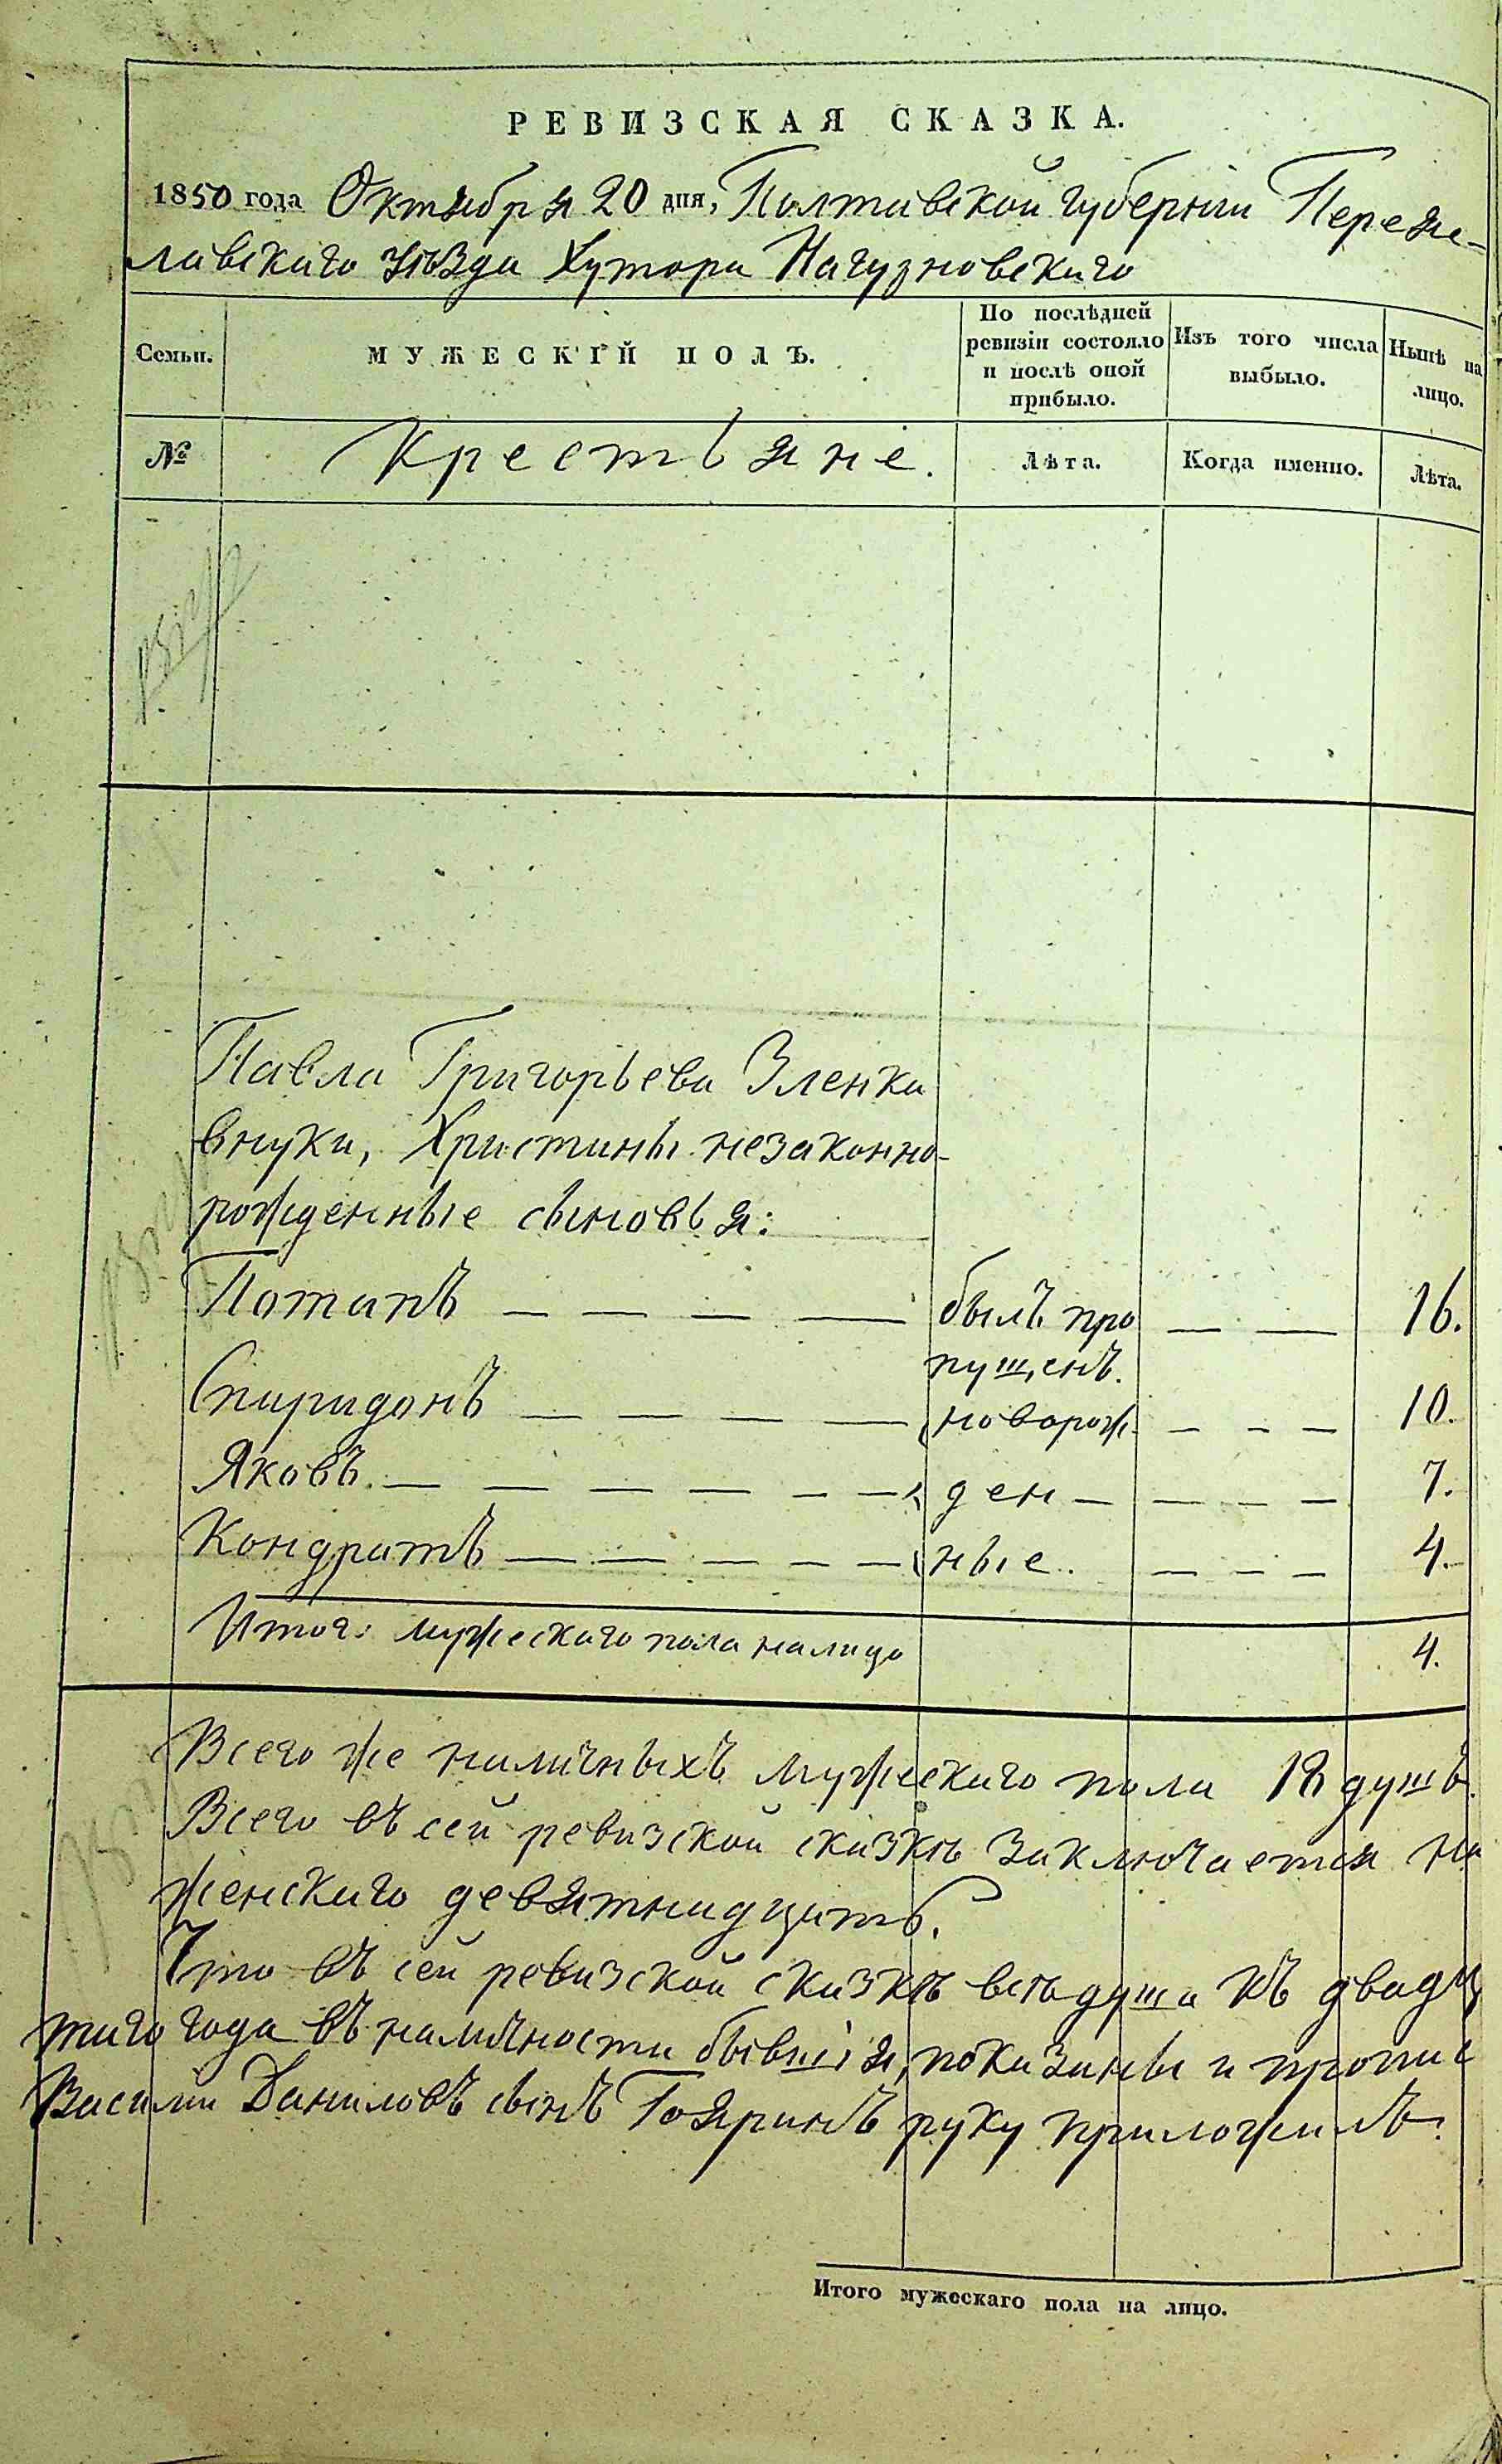 РЕВИЗСКАЯ СКАЗКА.
1850 года Октября 20 дня, Полтавской губерніи Переяс-
лавскаго уѣзда Хутора
Семьи.
МУЖЕСКІЙ ПОЛЪ.
По послѣдней
ревизіи состояло
и послѣ оной
прибыло.
Изъ того числа
выбыло.
Нынѣ на
лицо.
№
Крестьяне.
Лѣта.
Когда именно.
Лѣта.
Павла Григорьева Зленка
внуки, Христины незаконно-
рожденные сыновья:
Потапъ — — — — былъ про — — 16.
пущенъ.
Спиридонъ — — — — новорож- — — — 10.
Яковъ. — — — — — — ден — — — — 7.
Кондратъ — — — — — ные. — — — 4.
Итого: мужескаго пола налицо 4.
Всего же наличныхъ мужескаго пола 18 душъ.
Всего въ сей ревизской сказкѣ заключается на
женскаго девятнадцать.
Что въ сей ревизской сказкѣ всѣ душа къ двадц
таго года въ наличности бывшія, показаны и пропис
Василій Даниловъ сынъ руку приложилъ.
Итого мужескаго пола на лицо.